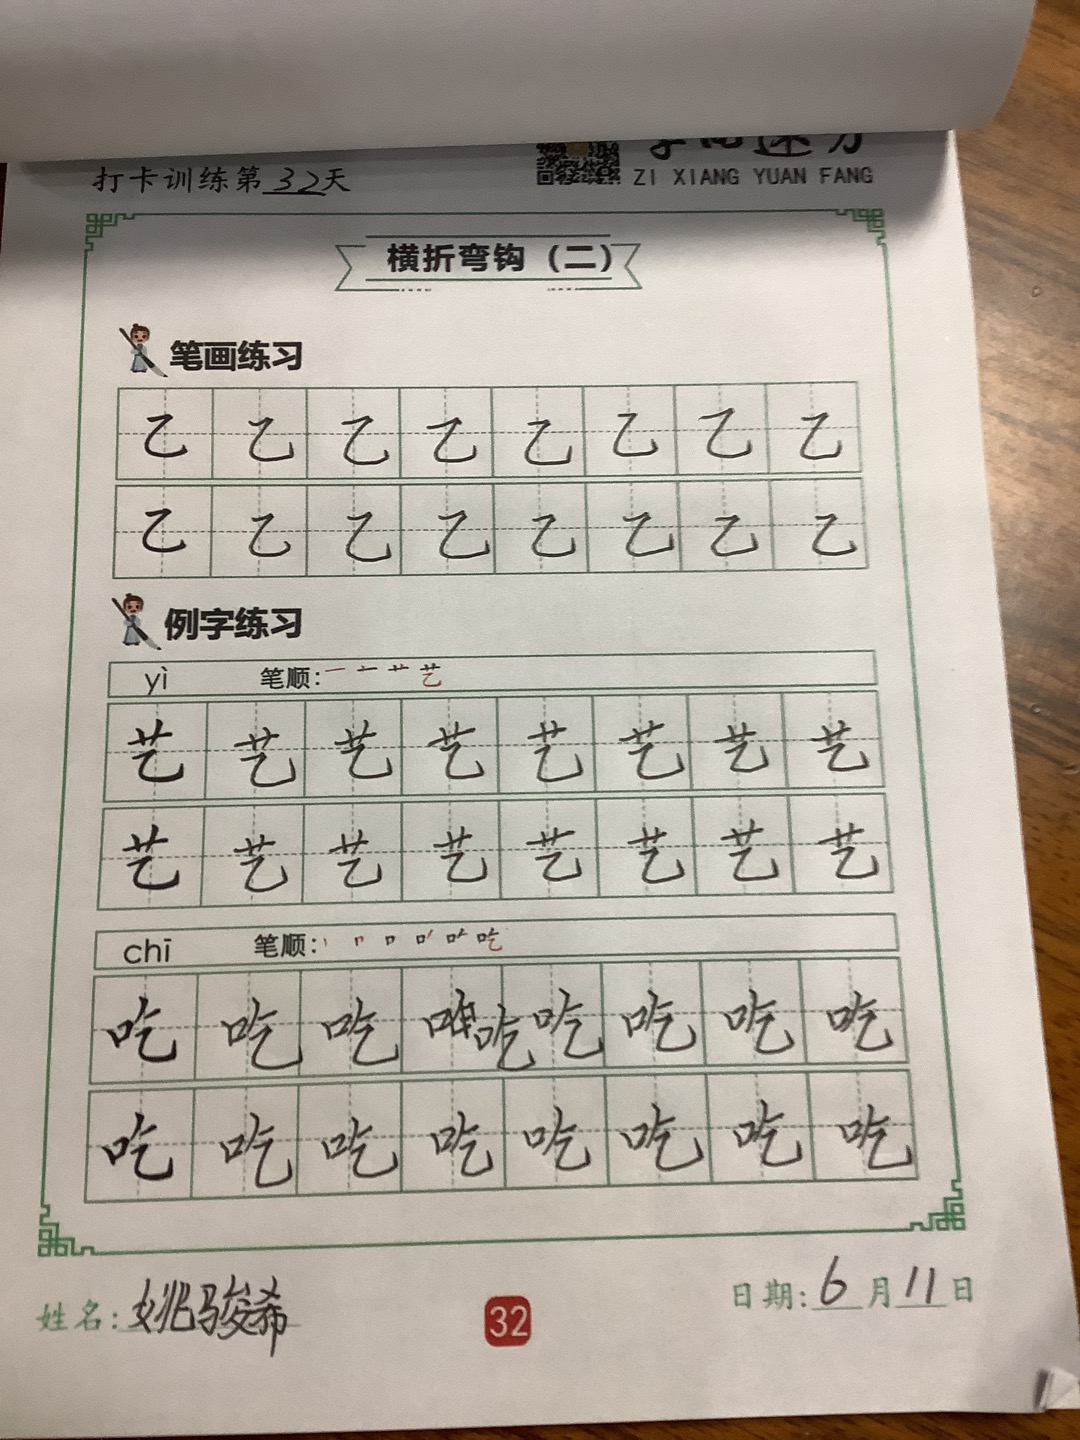 打卡训练第32天
ZI XIANG YUAN FANG
横折弯钩（二）
笔画练习
乙 乙 乙 乙 乙 乙 乙 乙
乙 乙 乙 乙 乙 乙 乙 乙
例字练习
yì 笔顺: 艺
艺 艺 艺 艺 艺 艺 艺 艺
艺 艺 艺 艺 艺 艺 艺 艺
chī 笔顺: 吃
吃 吃 吃 吃 吃 吃 吃 吃
吃 吃 吃 吃 吃 吃 吃 吃
姓名: 姚骏希
32
日期: 6月11日